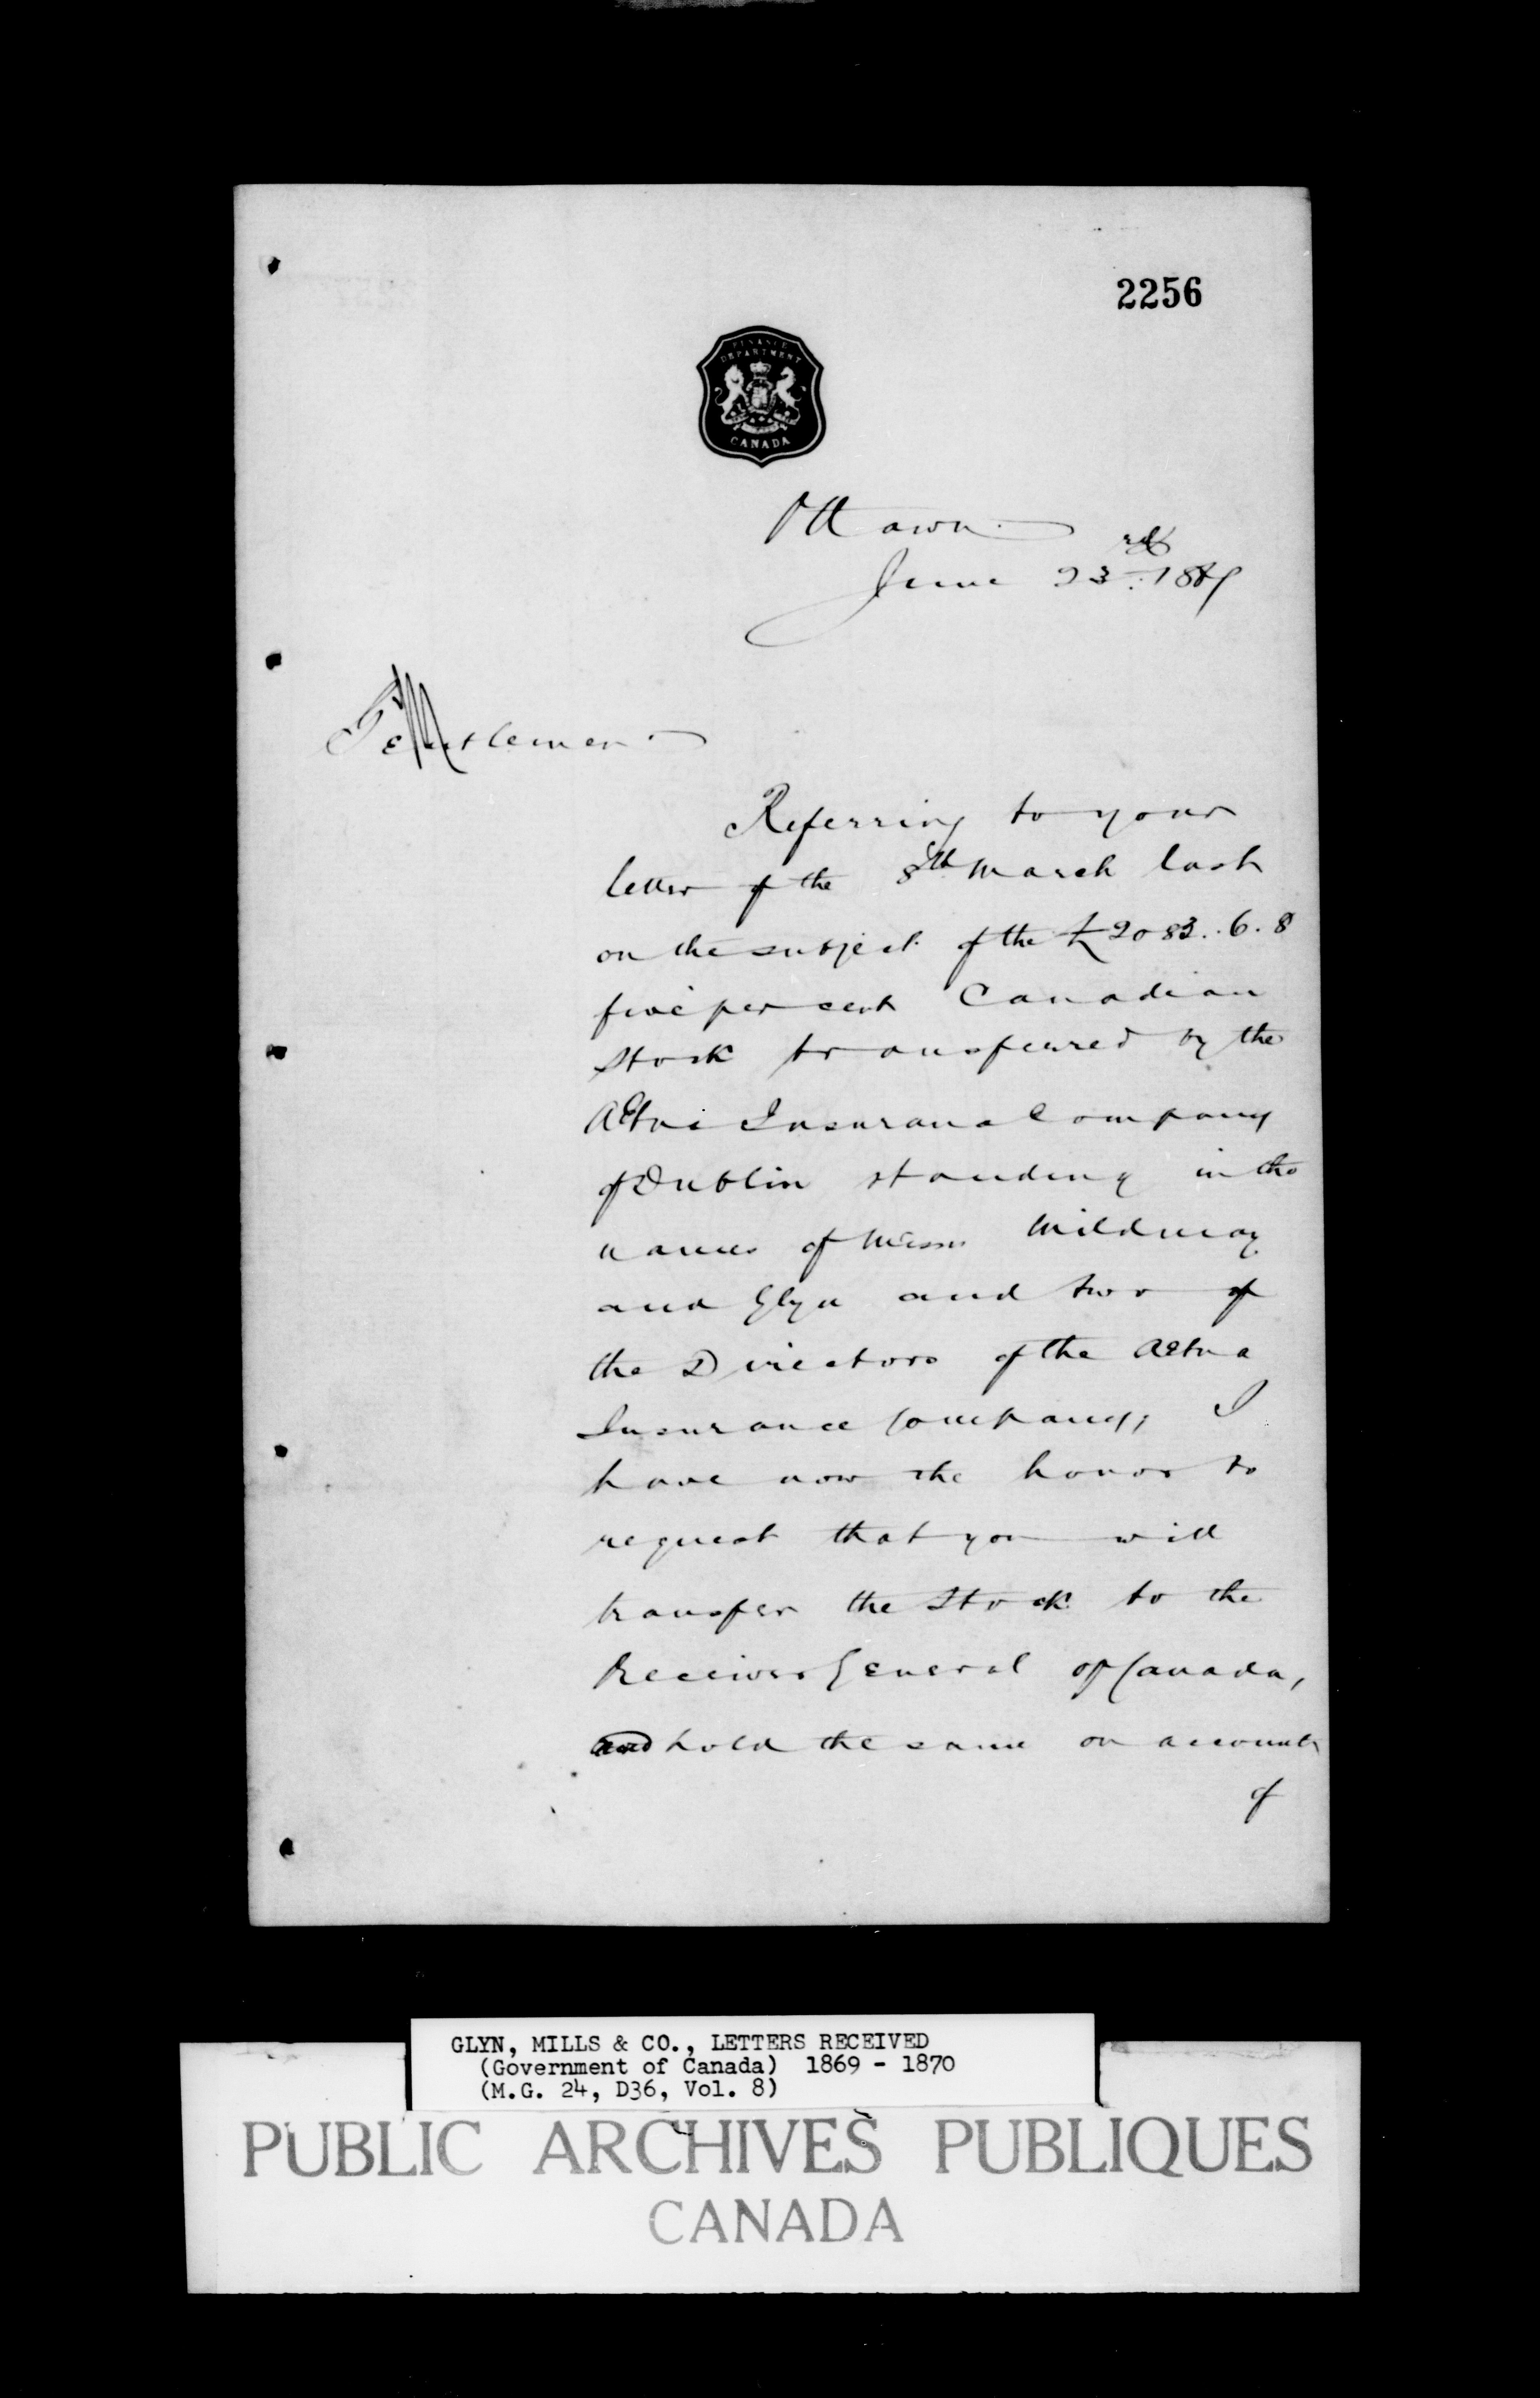 2256
FINANCE
DEPARTMENT
CANADA
Ottawa
June 23rd 1869
Gentlemen
Referring to your
letter of the 8th March last
on the subject of the £2083..6.8
five per cent Canadian
Stock transferred by the
Aetna Insurance Company
of Dublin standing in the
names of Messrs Mildmay
and Glyn and two of
the Directors of the Aetna
Insurance Company, I
have now the honor to
request that you will
transfer the Stock to the
Receiver General of Canada,
and hold the same on account
of
GLYN, MILLS & CO., LETTERS RECEIVED
(Government of Canada) 1869 - 1870
(M.G. 24, D36, Vol. 8)
PUBLIC ARCHIVES PUBLIQUES
CANADA